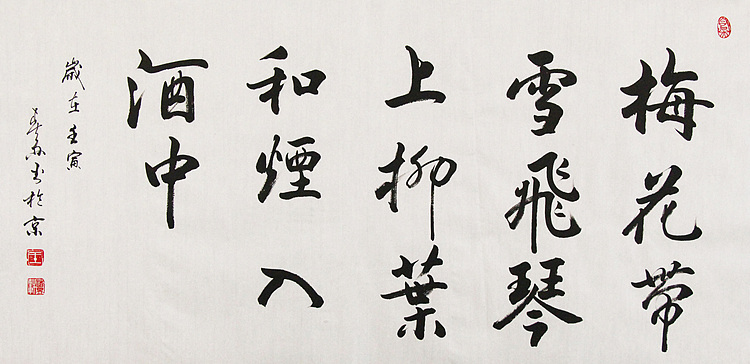 梅花帶
雪飛琴
上柳葉
和煙入
酒中
歲在壬寅
书於京